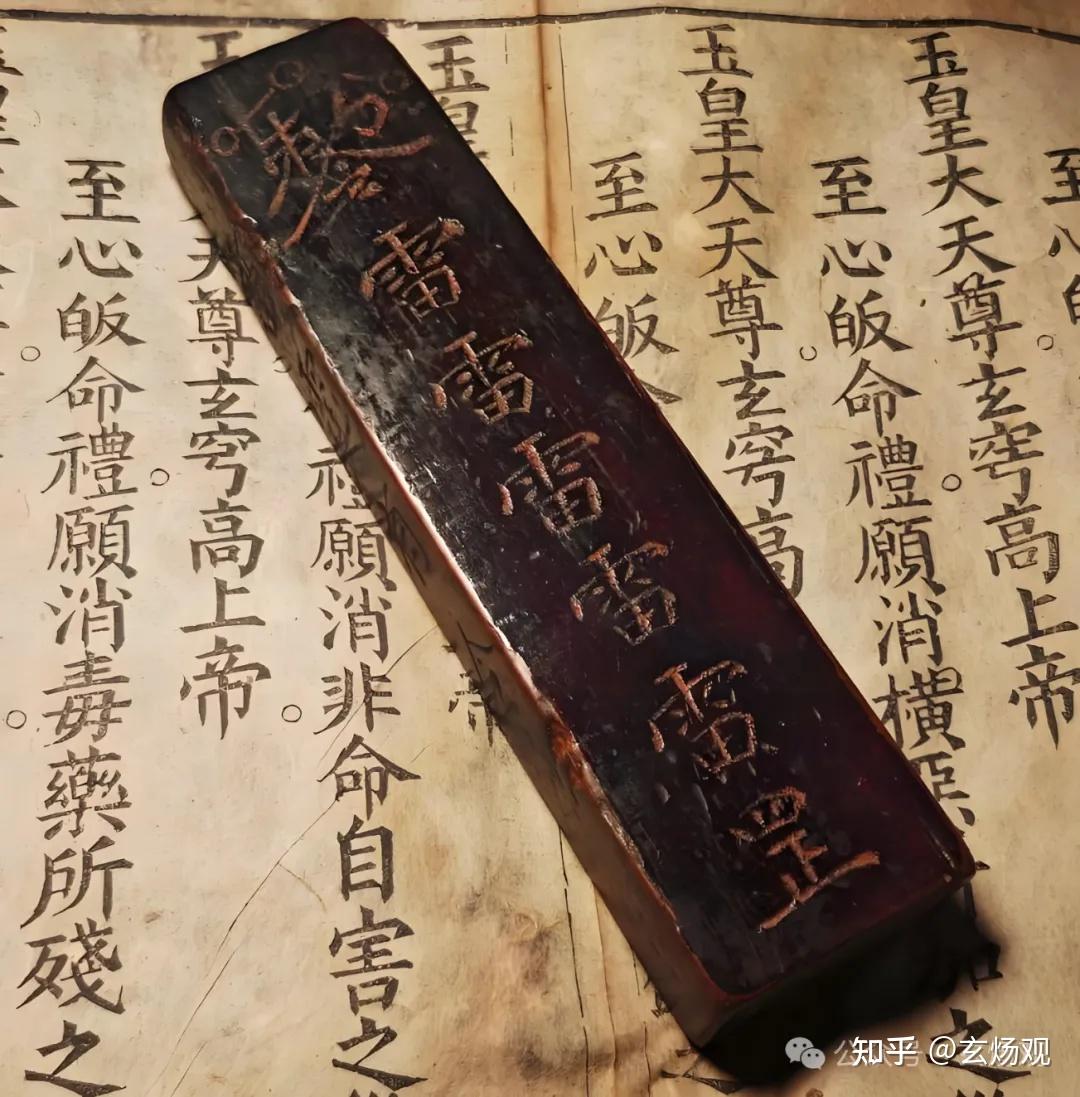 至心皈
玉皇大天尊玄穹高上帝
至心皈命禮願消橫惡
之
玉皇大天尊玄穹高
至心皈命
玉皇
帝
禮願消非命自害之
玉
天尊玄穹高上帝
至心皈命禮願消毒藥所殘之
雷雷雷雷雷罡
知乎 @玄炀观